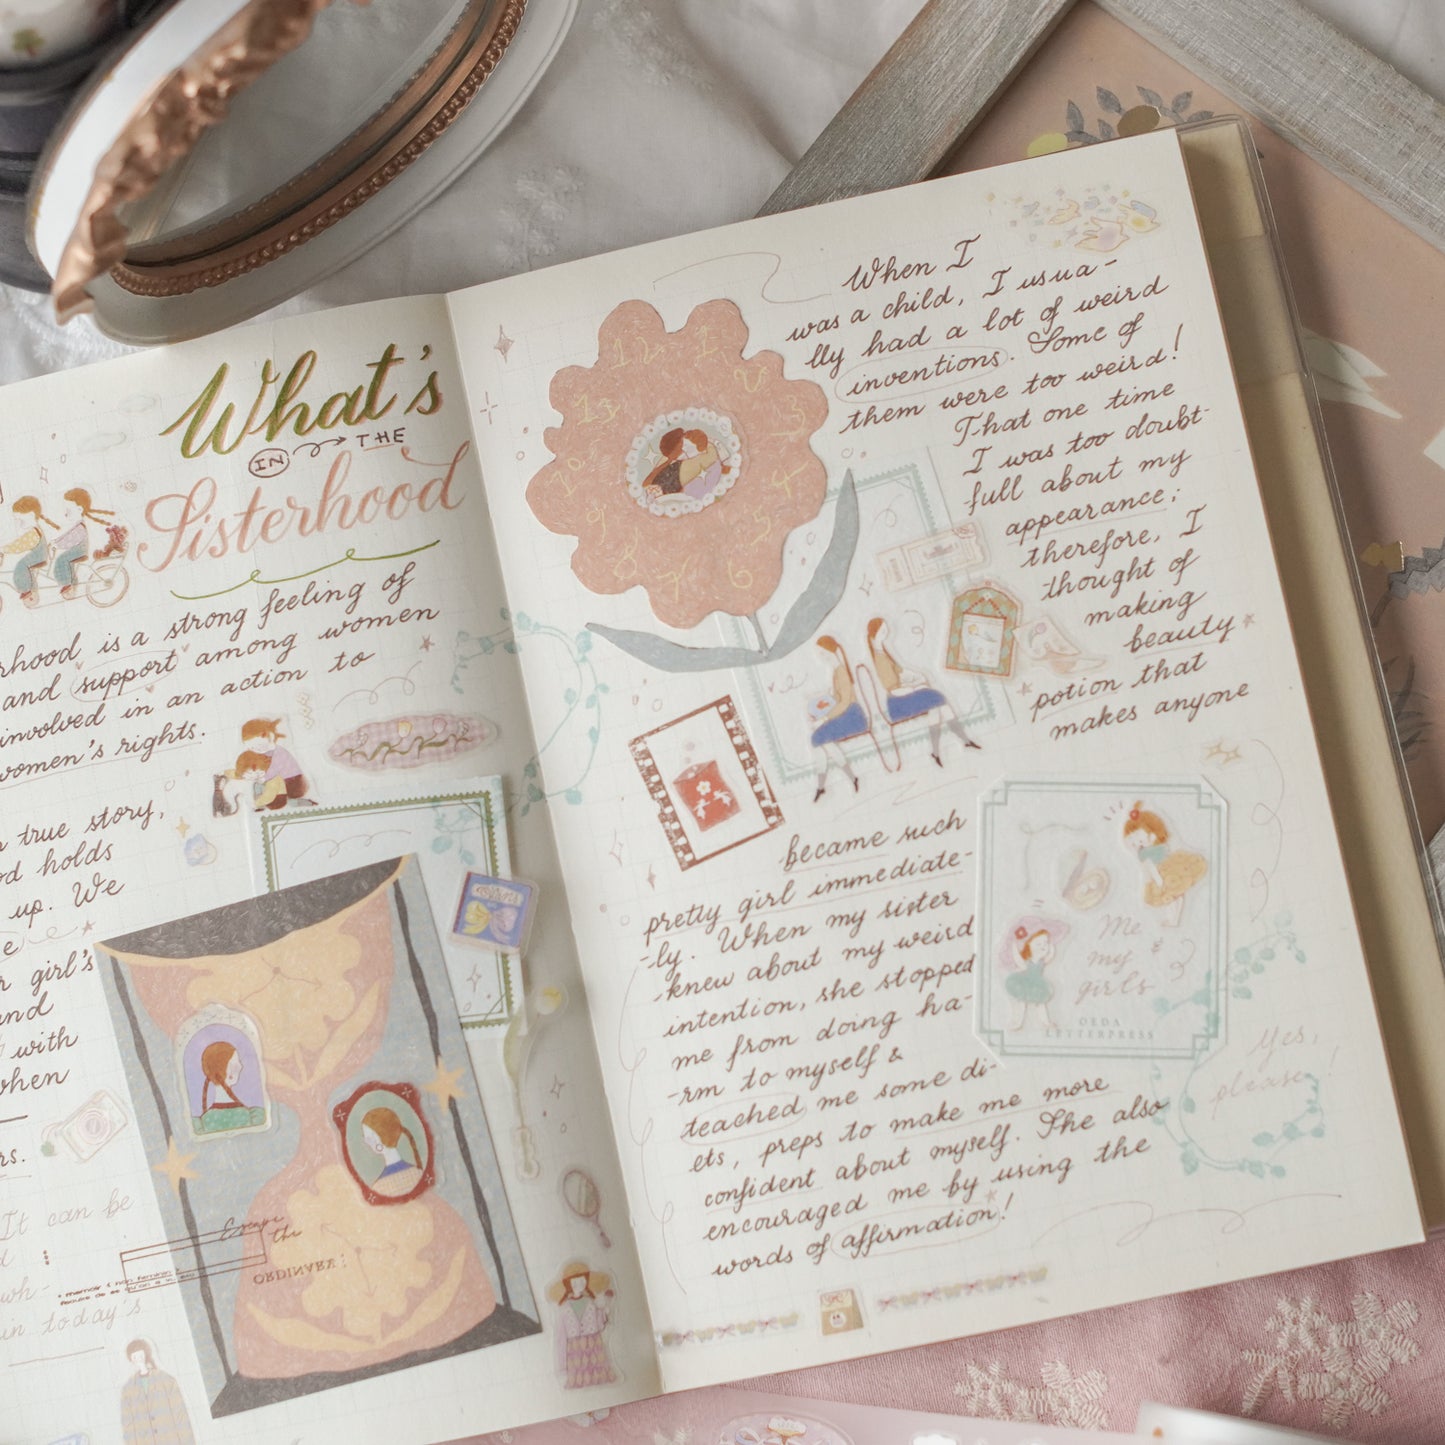 What's
IN THE
Sisterhood
rhood is a strong feeling of
and support among women
involved in an action to
women's rights.
true story,
od holds
up. We
girl's
and
with
when
rs.
It can be
wh-
in today's
Escape
the
ORDINARY:
12 1 2 3 4 5 6 7 8 9 10
When I
was a child, I usua-
lly had a lot of weird
inventions. Some of
them were too weird!
That one time
I was too doubt-
full about my
appearance;
therefore, I
thought of
making
beauty
potion that
makes anyone
became such
pretty girl immediate-
-ly. When my sister
knew about my weird
intention, she stopped
me from doing ha-
-rm to myself &
teached me some di-
ets, preps to make me more
confident about myself. She also
encouraged me by using the
words of affirmation!
Me
my &
girls
OEDA
LETTERPRESS
Yes,
please!